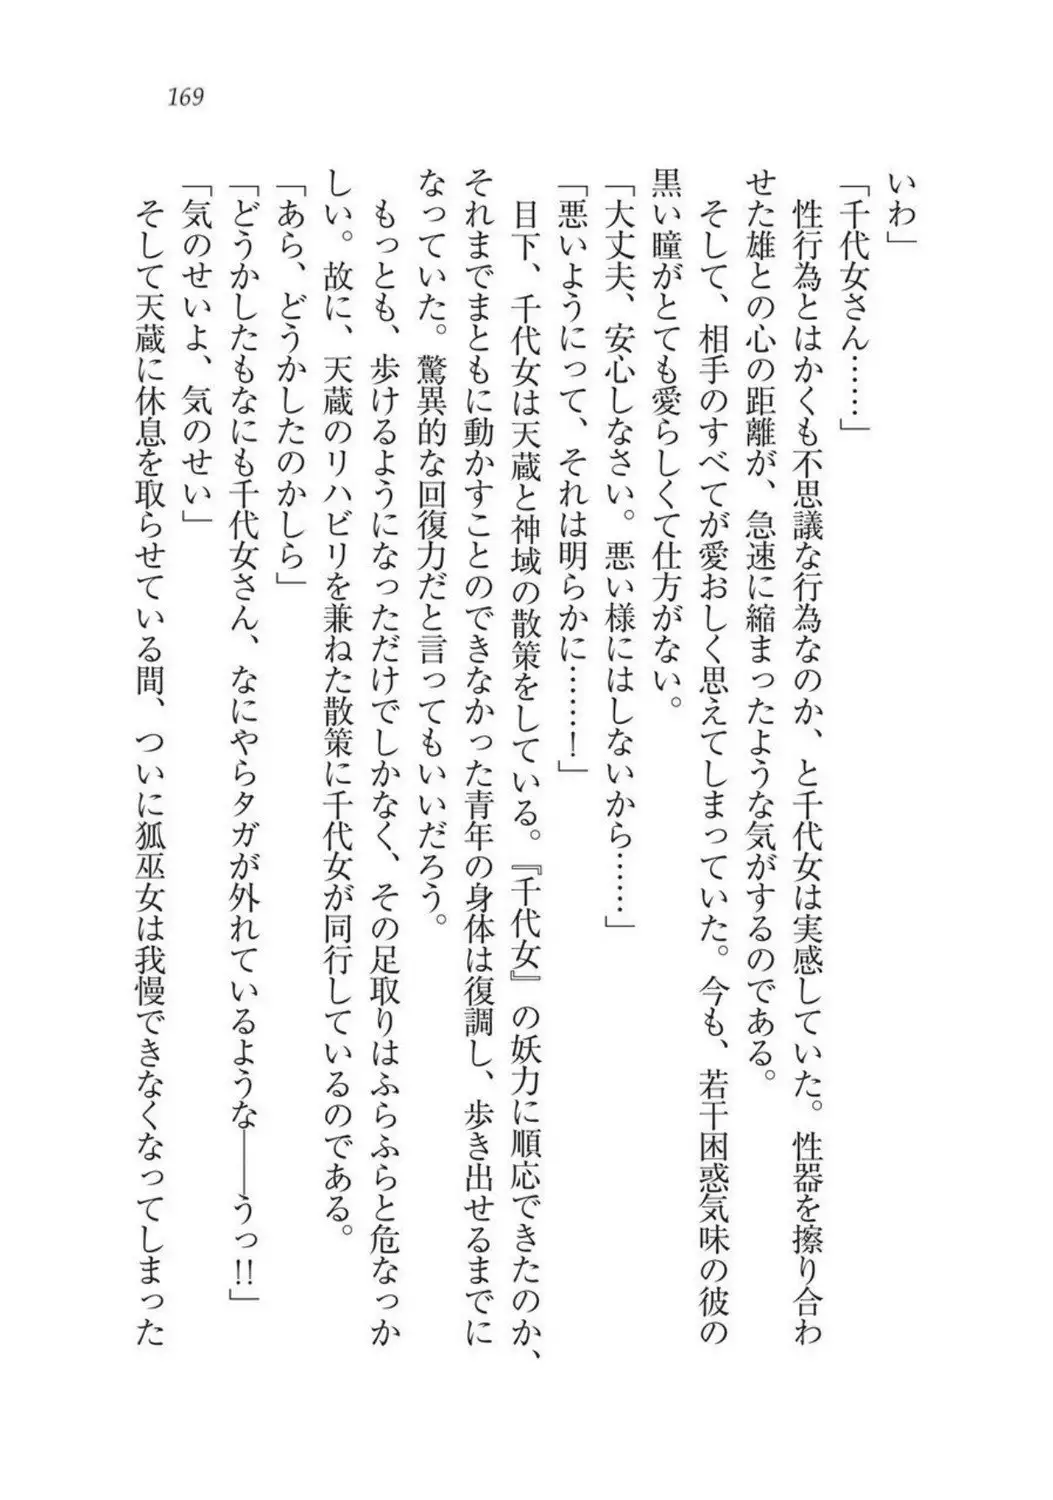 169
いわ」
「千代女さん……」
　性行為とはかくも不思議な行為なのか、と千代女は実感していた。性器を擦り合わ
せた雄との心の距離が、急速に縮まったような気がするのである。
　そして、相手のすべてが愛おしく思えてしまっていた。今も、若干困惑気味の彼の
黒い瞳がとても愛らしくて仕方がない。
「大丈夫、安心しなさい。悪い様にはしないから……」
「悪いようにって、それは明らかに……！」
　目下、千代女は天蔵と神域の散策をしている。『千代女』の妖力に順応できたのか、
それまでまともに動かすことのできなかった青年の身体は復調し、歩き出せるまでに
なっていた。驚異的な回復力だと言ってもいいだろう。
　もっとも、歩けるようになっただけでしかなく、その足取りはふらふらと危なっか
しい。故に、天蔵のリハビリを兼ねた散策に千代女が同行しているのである。
「あら、どうかしたのかしら」
「どうかしたもなにも千代女さん、なにやらタガが外れているような――うっ!!」
「気のせいよ、気のせい」
　そして天蔵に休息を取らせている間、ついに狐巫女は我慢できなくなってしまった